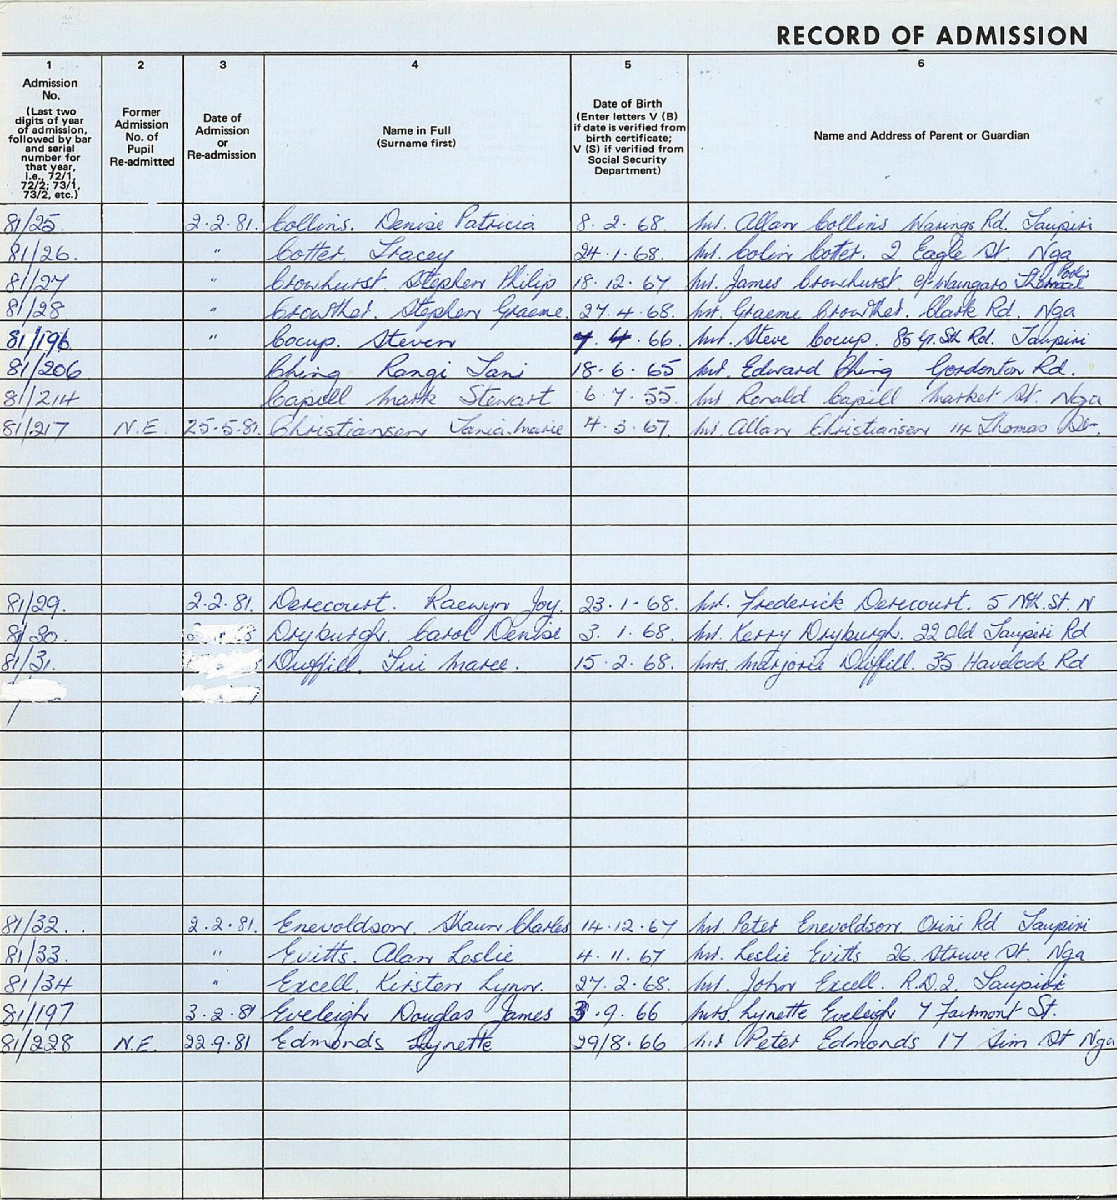 RECORD OF ADMISSION
1 2 3 4 5 6
Admission No. (Last two digits of year of admission, followed by bar and serial number for that year, i.e., 72/1, 72/2; 73/1, 73/2, etc.)
Former Admission No. of Pupil Re-admitted
Date of Admission or Re-admission
Name in Full (Surname first)
Date of Birth (Enter letters V (B) if date is verified from birth certificate; V (S) if verified from Social Security Department)
Name and Address of Parent or Guardian
81/25 2.2.81. Collins. Denise Patricia 8.2.68. Mr. Allan Collins Warings Rd. Taupiri
81/26. " Cotter Tracey 24.1.68. Mr. Colin Cotter. 2 Eagle St. Nga
81/27 " Crowhurst. Stephen Philip 18.12.67 Mr. James Crowhurst. Waingaro Thermal Pools
81/28 " Crowther. Stephen Graeme. 27.4.68. Mr. Graeme Crowther. Clark Rd. Nga
81/196 " Cocup. Steven 7.4.66. Mr. Steve Cocup. 85 Gt. Sth Rd. Taupiri
81/206 Ching Rangi Tani 18.6.65 Mr. Edward Ching Gordonton Rd.
81/214 Capill Mark Stewart 6.7.55. Mr Ronald Capill Market St. Nga
81/217 N.E. 25.5.81. Christiansen Tania Marie 4.3.67. Mr. Allan Christiansen 14 Thomas
81/29. 2.2.81. Derecourt. Raewyn Joy. 23.1.68. Mr. Frederick Derecourt. 5 Nth. St. N
81/30. Dryburgh. Carol Denise 3.1.68. Mr. Kerry Dryburgh. 22 Old Taupiri Rd
81/31. Duffill. Tui Maree. 15.2.68. Mrs. Marjorie Duffill. 35 Havelock Rd
/
81/32. 2.2.81. Enevoldson. Shaun Charles 14.12.67 Mr. Peter Enevoldson. Orini Rd Taupiri
81/33. " Evitts. Alan Leslie. 4.11.67 Mr. Leslie Evitts 26. Struve St. Nga
81/34 " Excell. Kirsten Lynn. 27.2.68. Mr. John Excell. R.D.2. Taupiri
81/197 3.2.81 Eveleigh Douglas James 3.9.66 Mrs Lynette Eveleigh 7 Fairmont St.
81/228 N.E. 22.9.81 Edmonds Lynette 29/8.66 Mr Peter Edmonds 17 Sim St Nga